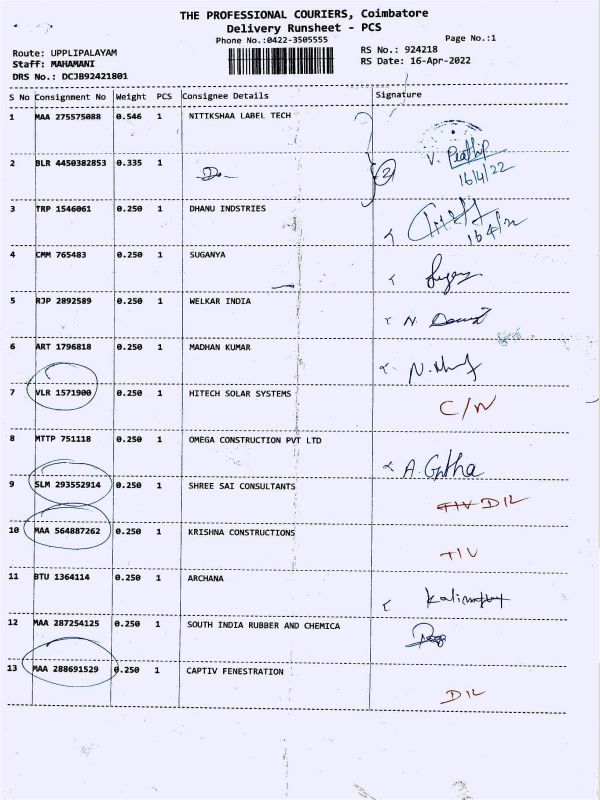 THE PROFESSIONAL COURIERS, Coimbatore
Delivery Runsheet - PCS
Phone No.:0422-3505555
Page No.:1
Route: UPPLIPALAYAM
RS No.: 924218
Staff: MAHAMANI
RS Date: 16-Apr-2022
DRS No.: DCJB92421801
S No Consignment No Weight PCS Consignee Details Signature
1 MAA 275575088 0.546 1 NITIKSHAA LABEL TECH
V. Prathip
16/4/22
2 BLR 4450382853 0.335 1 Do 2
3 TRP 1546061 0.250 1 DHANU INDSTRIES
4 CMM 765483 0.250 1 SUGANYA
5 RJP 2892589 0.250 1 WELKAR INDIA N.
6 ART 1796818 0.250 1 MADHAN KUMAR N.
7 VLR 1571900 0.250 1 HITECH SOLAR SYSTEMS C/N
8 MTTP 751118 0.250 1 OMEGA CONSTRUCTION PVT LTD A. Gptha
9 SLM 293552914 0.250 1 SHREE SAI CONSULTANTS TIV DIL
10 MAA 564887262 0.250 1 KRISHNA CONSTRUCTIONS TIV
11 BTU 1364114 0.250 1 ARCHANA
12 MAA 287254125 0.250 1 SOUTH INDIA RUBBER AND CHEMICA
13 MAA 288691529 0.250 1 CAPTIV FENESTRATION DIL